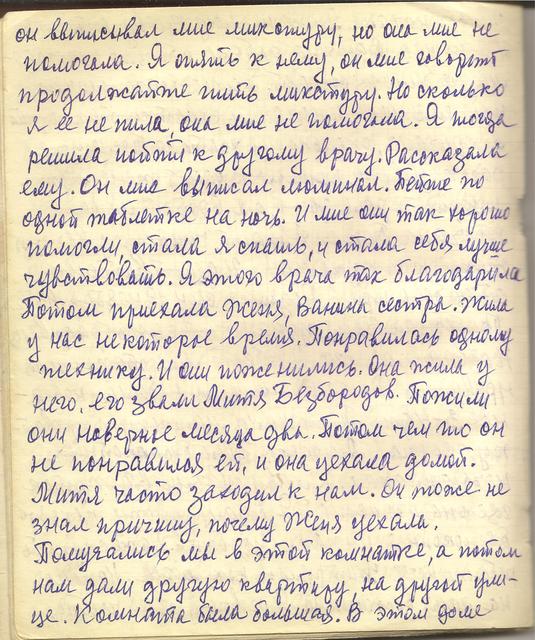 он выписывал мне микстуру, но она мне не
помогала. Я опять к нему, он мне говорит
продолжайте пить микстуру. Но сколько
я её не пила, она мне не помогала. Я тогда
решила пойти к другому врачу. Рассказала
ему. Он мне выписал люминал. Пейте по
одной таблетке на ночь. И мне они так хорошо
помогли, стала я спать, и стала себя лучше
чувствовать. Я этого врача так благодарила
Потом приехала Женя, Ванина сестра. Жила
у нас некоторое время. Понравилась одному
технику. И они поженились. Она жила у
него. его звали Митя Безбородов. Пожили
они наверное месяца два. Потом чем то он
не понравился ей, и она уехала домой.
Митя часто заходил к нам. Он тоже не
знал причину, почему Женя уехала.
Помучались мы в этой комнатке, а потом
нам дали другую квартиру, на другой ули-
це. Комната была большая. В этом доме